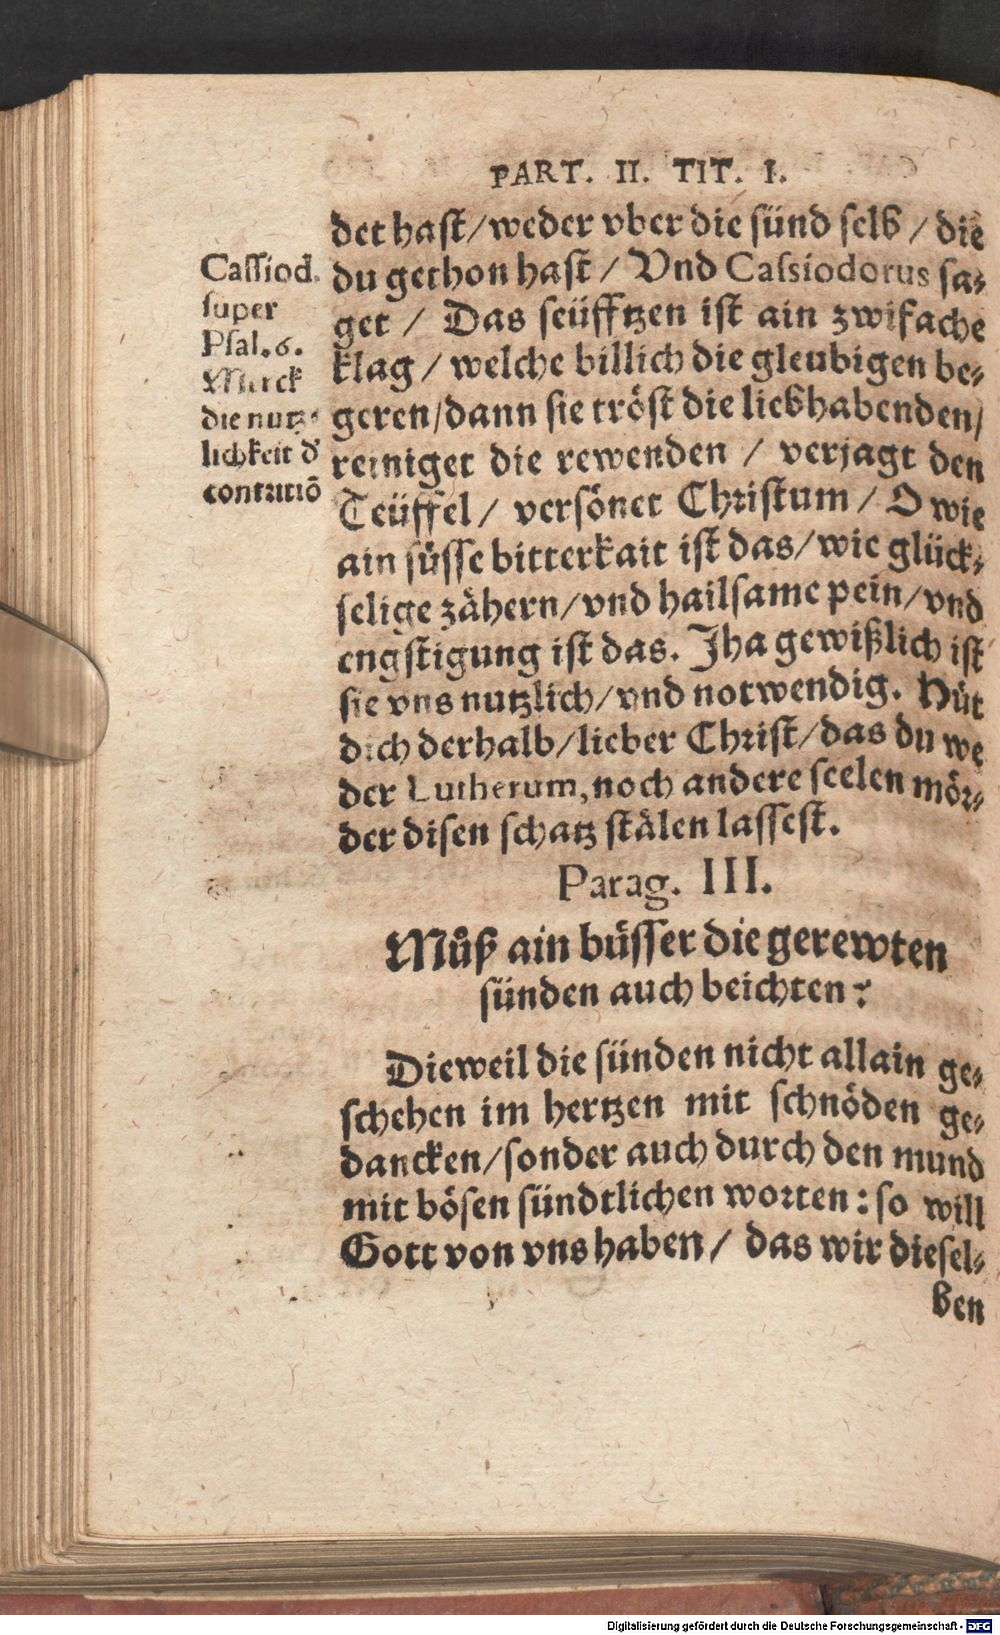 PART. II. TIT. I.
det hast / weder vber die sünd selb / die
du gethon hast / Vnd Cassiodorus sa⸗
get / Das seüfftzen ist ain zwifache
klag / welche billich die gleubigen be⸗
geren / dann sie tröst die liebhabenden /
reiniget die rewenden / verjagt den
Teüffel / versönet Christum / O wie
ain süsse bitterkait ist das / wie glück⸗
selige zähern / vnd hailsame pein / vnd
engstigung ist das. Jha gewißlich ist
sie vns nutzlich / vnd notwendig. Hüt
dich derhalb / lieber Christ / das du we
der Lutherum, noch andere seelen mör⸗
der disen schatz stälen lassest.
Cassiod.
super
Psal. 6.
Merck
die nutz⸗
lichkeit d'
contritiõ
Parag. III.
Můß ain büsser die gerewten
sünden auch beichten?
Dieweil die sünden nicht allain ge⸗
schehen im hertzen mit schnöden ge⸗
dancken / sonder auch durch den mund
mit bösen sündtlichen worten: so will
Gott von vns haben / das wir diesel⸗
ben
Digitalisierung gefördert durch die Deutsche Forschungsgemeinschaft - DFG